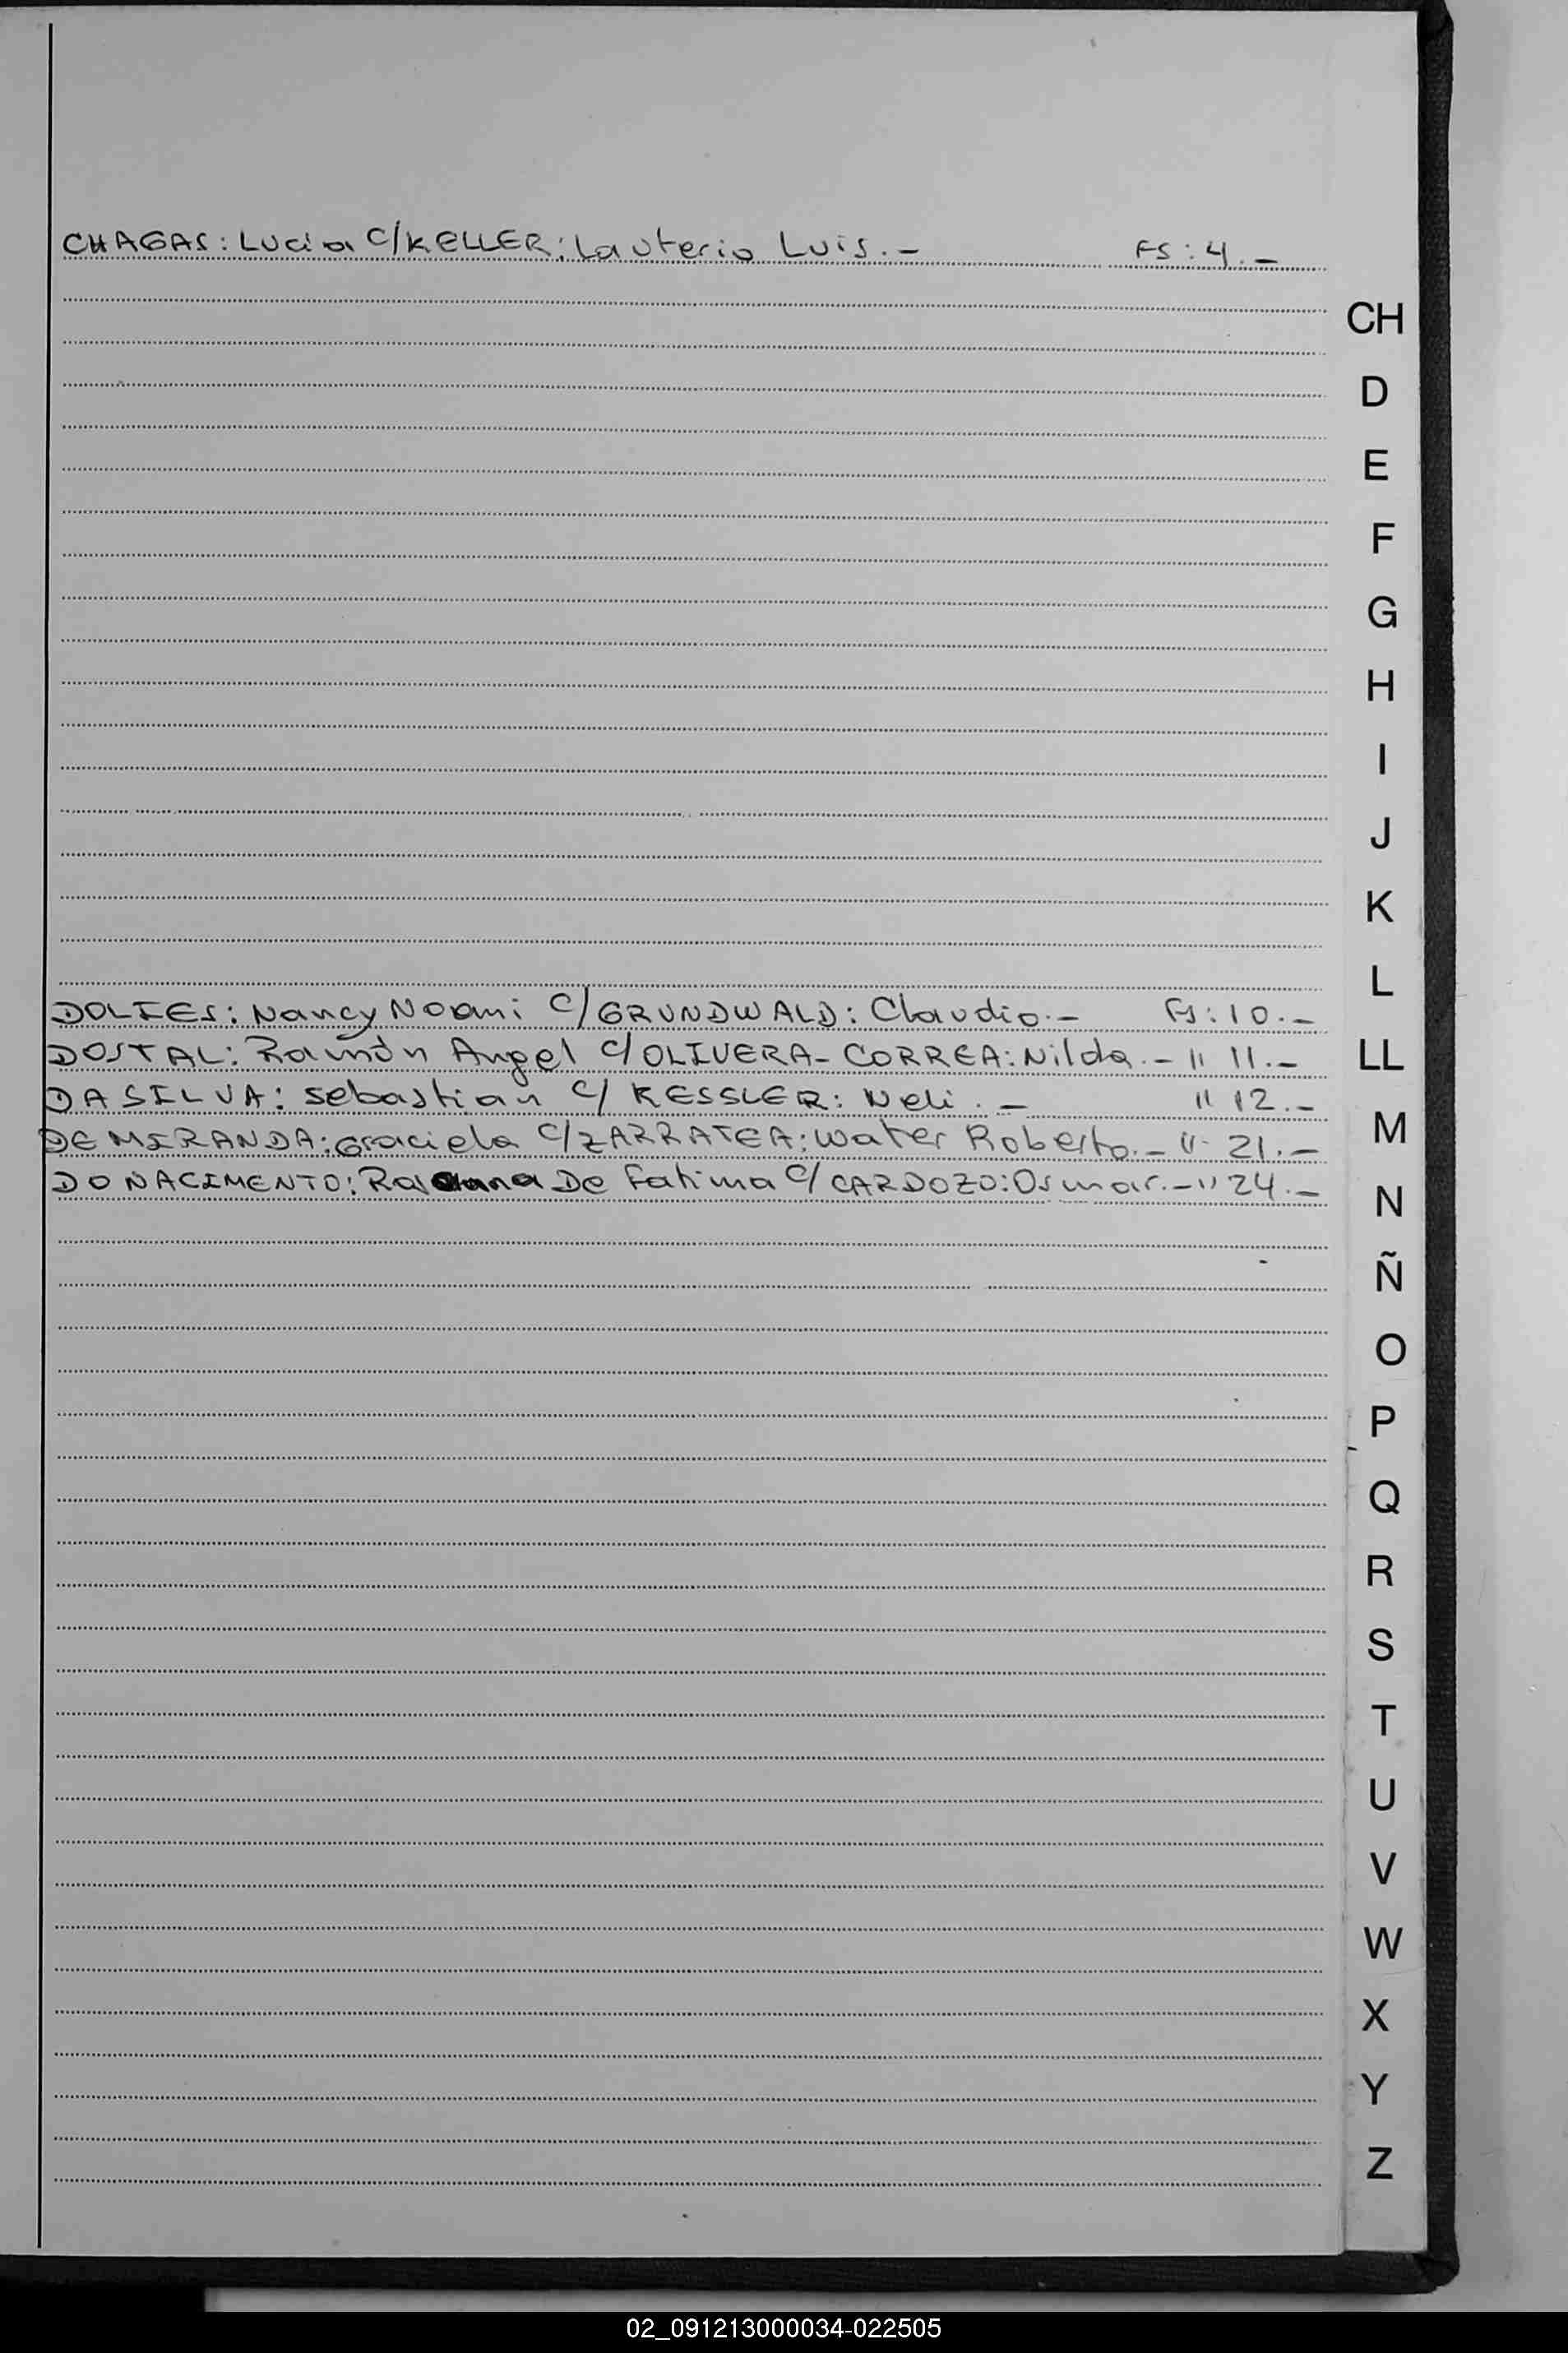 CHAGAS: Lucia C/KELLER: Lauterio Luis.- FS: 4.-
CH
D
E
F
G
H
I
J
K
L
DOLIES: Nancy Noemi C/GRUNDWALD: Claudio.- Fs: 10.-
DOSTAL: Ramón Angel C/OLIVERA-CORREA: Nilda.- " 11.-
LL
DASILVA: Sebastian C/ KESSLER: Neli.- " 12.-
DE MIRANDA: Graciela C/ZARRATEA: Walter Roberto.- " 21.-
M
DO NACIMENTO: De Fatima C/ CARDOZO: Osmar.- " 24.-
N
Ñ
O
P
Q
R
S
T
U
V
W
X
Y
Z
02_091213000034-022505